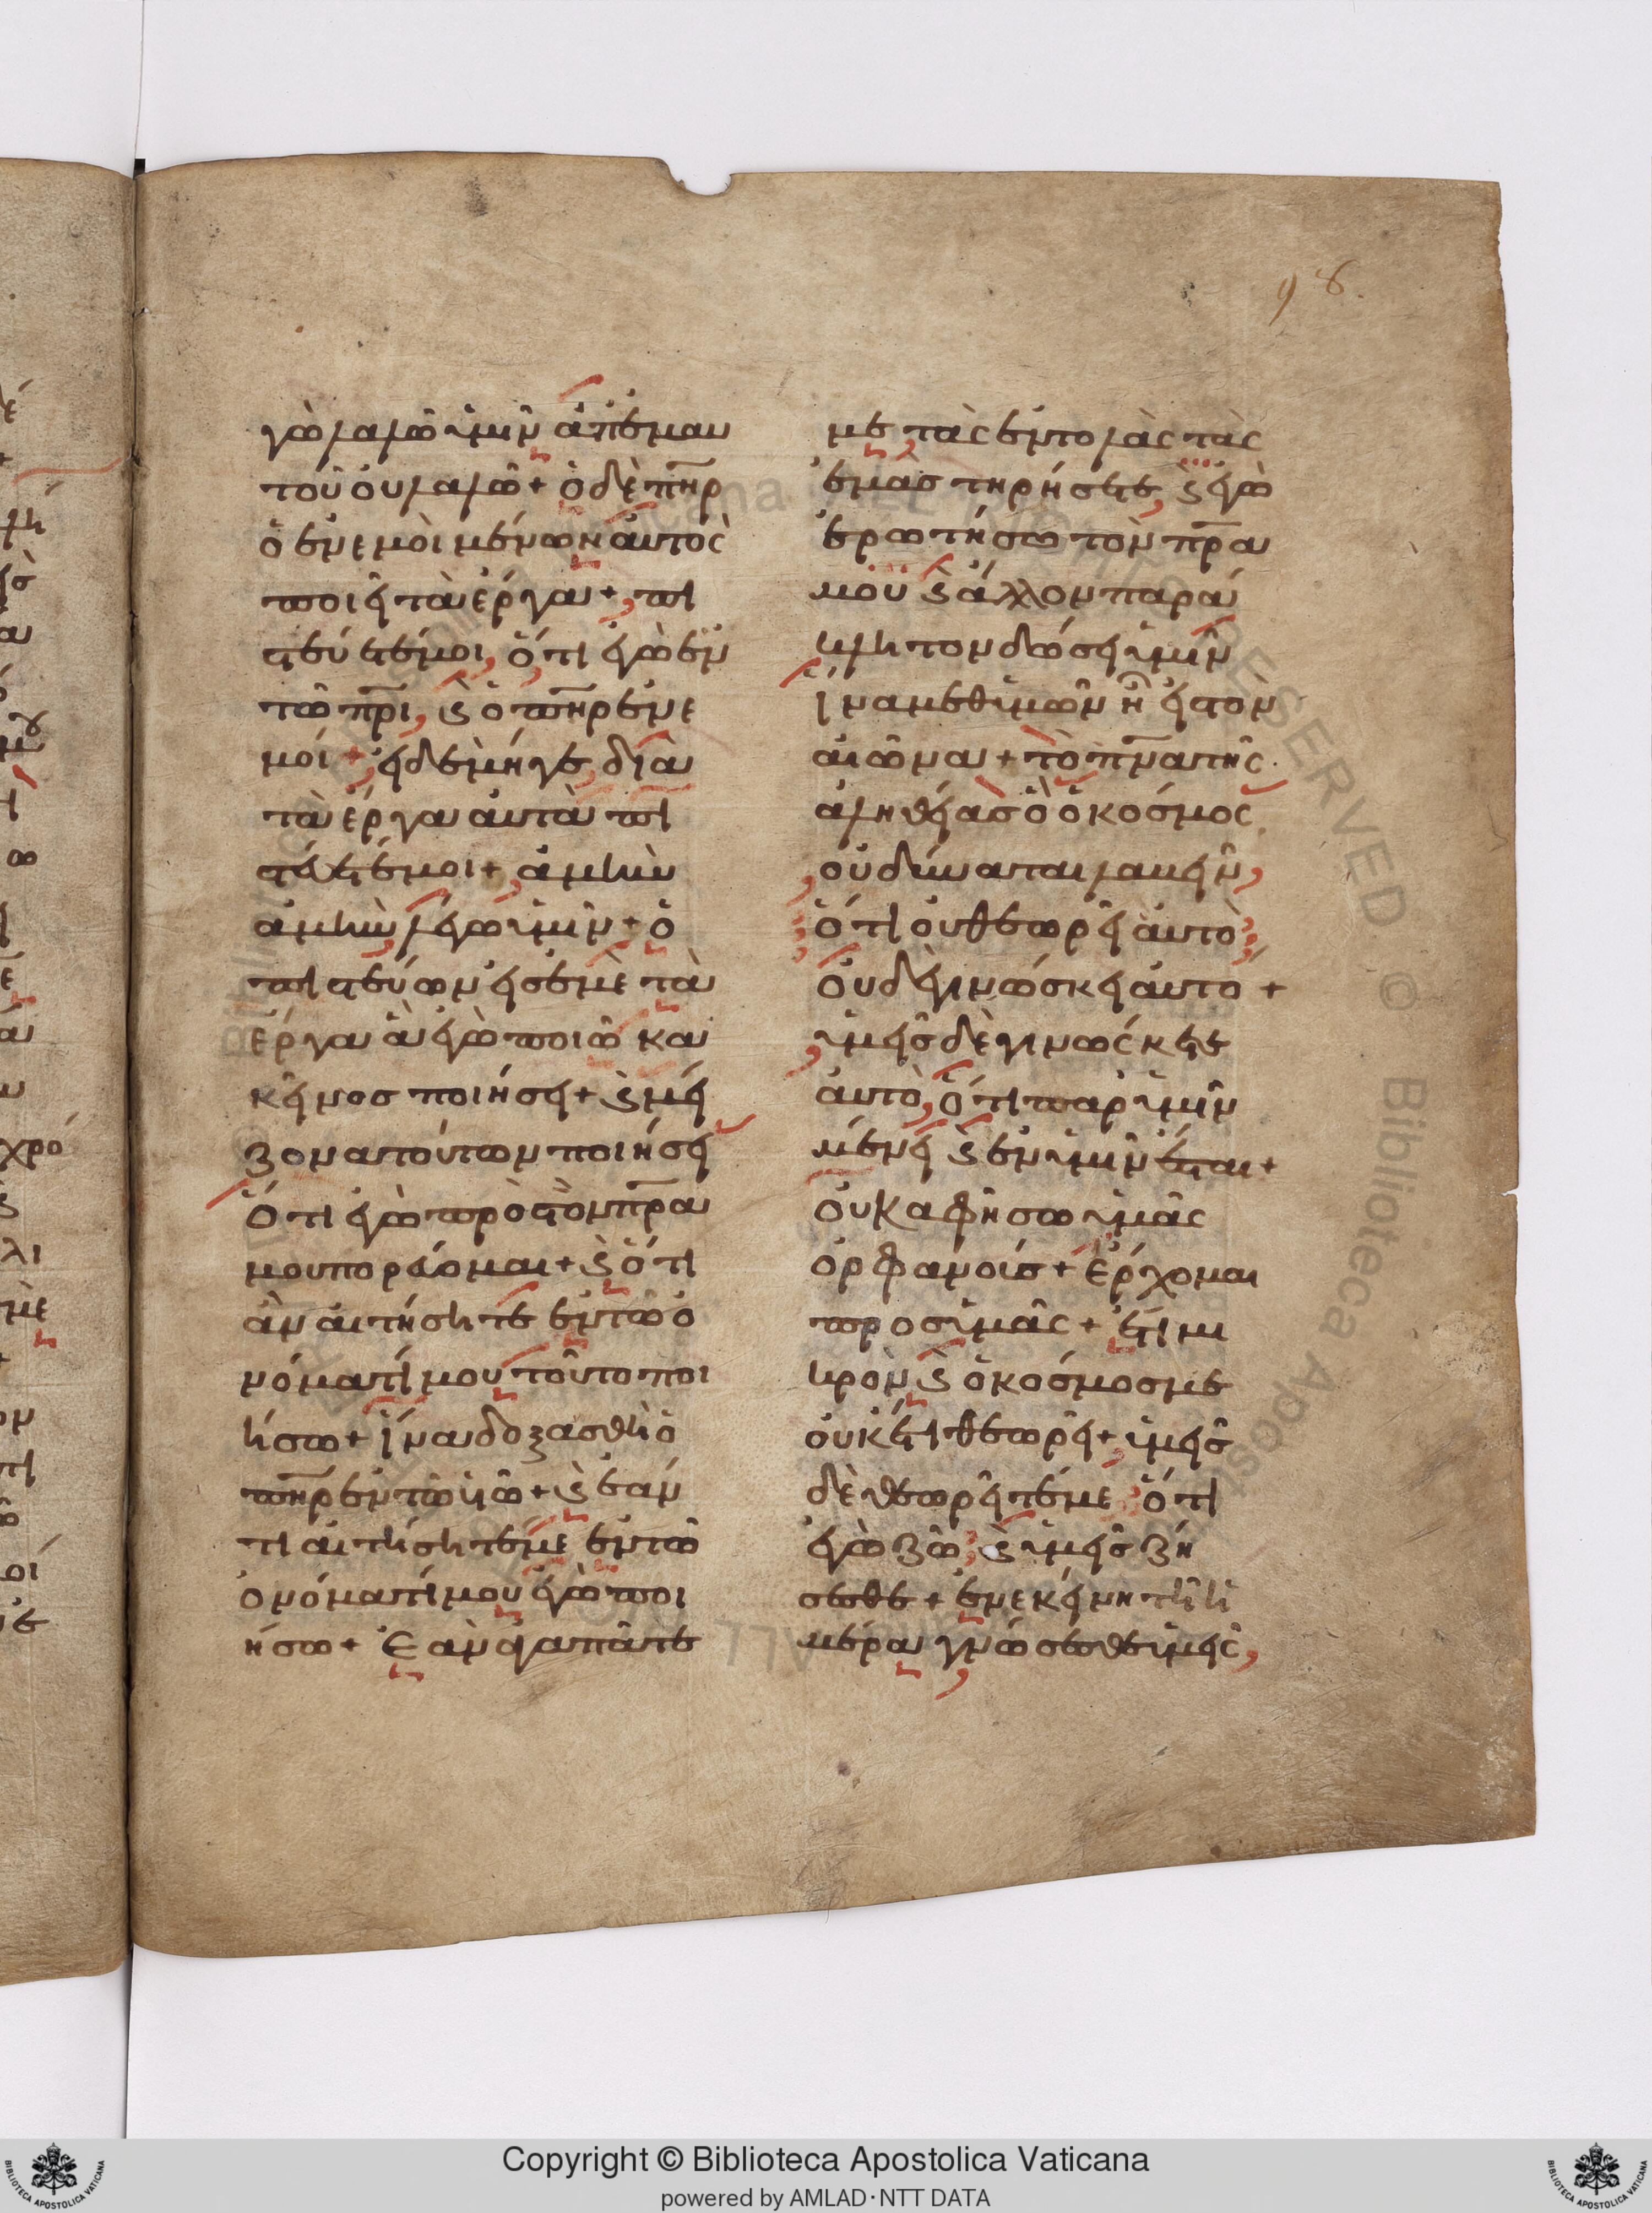 98.
γὼ λαλῶ ὑμῖν ἀπ' ἐμαυ
τοῦ οὐ λαλῶ + ὁ δὲ πηρ
ὁ ἐν ἐμοὶ μένων αὐτὸς
ποιεῖ τὰ ἔργα +, πι
στεύετέ μοι, ὅτι ἐγὼ ἐν
τῷ πρι, ϛ ὁ πηρ ἐν ἐ
μοί + εἰ δὲ μήγε, διὰ
τὰ ἔργα αὐτὰ πι
στεύετέ μοι + ἀμὴν
ἀμὴν λέγω ὑμῖν + ὁ
πιστεύων εἰς ἐμὲ τὰ
ἔργα ἃ ἐγὼ ποιῶ κα
κεῖνος ποιήσει + ϛ μεί
ζονα τούτων ποιήσει
Ὅτι ἐγὼ πρὸς τὸν πρα
μου πορεύομαι + ϛ ὅτι
ἂν αἰτήσητε ἐν τῷ ὀ
νόματί μου τοῦτο ποι
ήσω + ἵνα δοξασθῇ ὁ
πηρ ἐν τῷ υἱῷ + ϛ ἐάν
τι αἰτήσητέ με ἐν τῷ
ὀνόματί μου ἐγὼ ποι
ήσω + Ἐὰν ἀγαπᾶτέ
με τὰς ἐντολὰς τὰς
ἐμὰς τηρήσετε, ϛ ἐγὼ
ἐρωτήσω τὸν πρα
μου ϛ ἄλλον παρά
κλητον δώσει ὑμῖν
ἵνα μεθ' ὑμῶν ᾖ εἰς τὸν
αἰῶνα + τὸ πνα τῆς
ἀληθείας ὃ ὁ κόσμος
οὐ δύναται λαβεῖν,
ὅτι οὐ θεωρεῖ αὐτὸ,
οὐδὲ γινώσκει αὐτό +
ὑμεῖς δὲ γινώσκετε
αὐτὸ, ὅτι παρ' ὑμῖν
μένει ϛ ἐν ὑμῖν ἔσται +
οὐκ ἀφήσω ὑμᾶς
ὀρφανούς + ἔρχομαι
πρὸς ὑμᾶς + ἔτι μι
κρὸν ϛ ὁ κόσμος με
οὐκέτι θεωρεῖ + ὑμεῖς
δὲ θεωρεῖτέ με ὅτι
ἐγὼ ζῶ, ϛ ὑμεῖς ζή
σεσθε + ἐν ἐκείνῃ τῇ ἡ
μέρα γνώσεσθε ὑμεῖς,
Copyright © Biblioteca Apostolica Vaticana
powered by AMLAD·NTT DATA